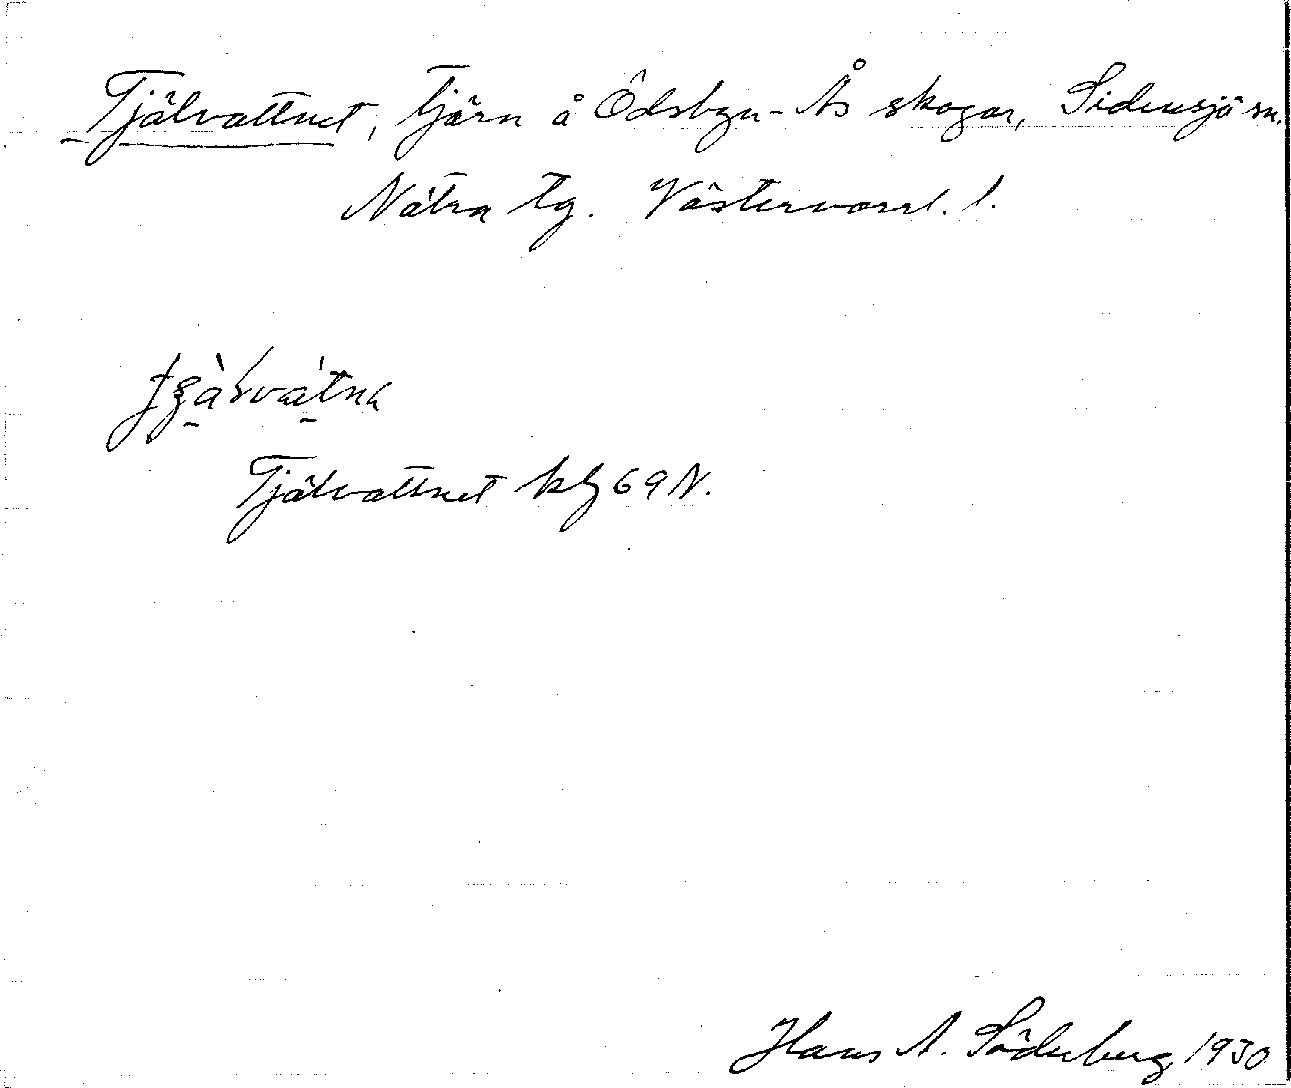 Tjälvattnet, tjärn å Ödsbyn-Ås skogar, Sidensjö sn.
Nätra tg. Västernorrl. l.
Tjälvattnet kbl 69 N.
Hans A. Söderberg 1930